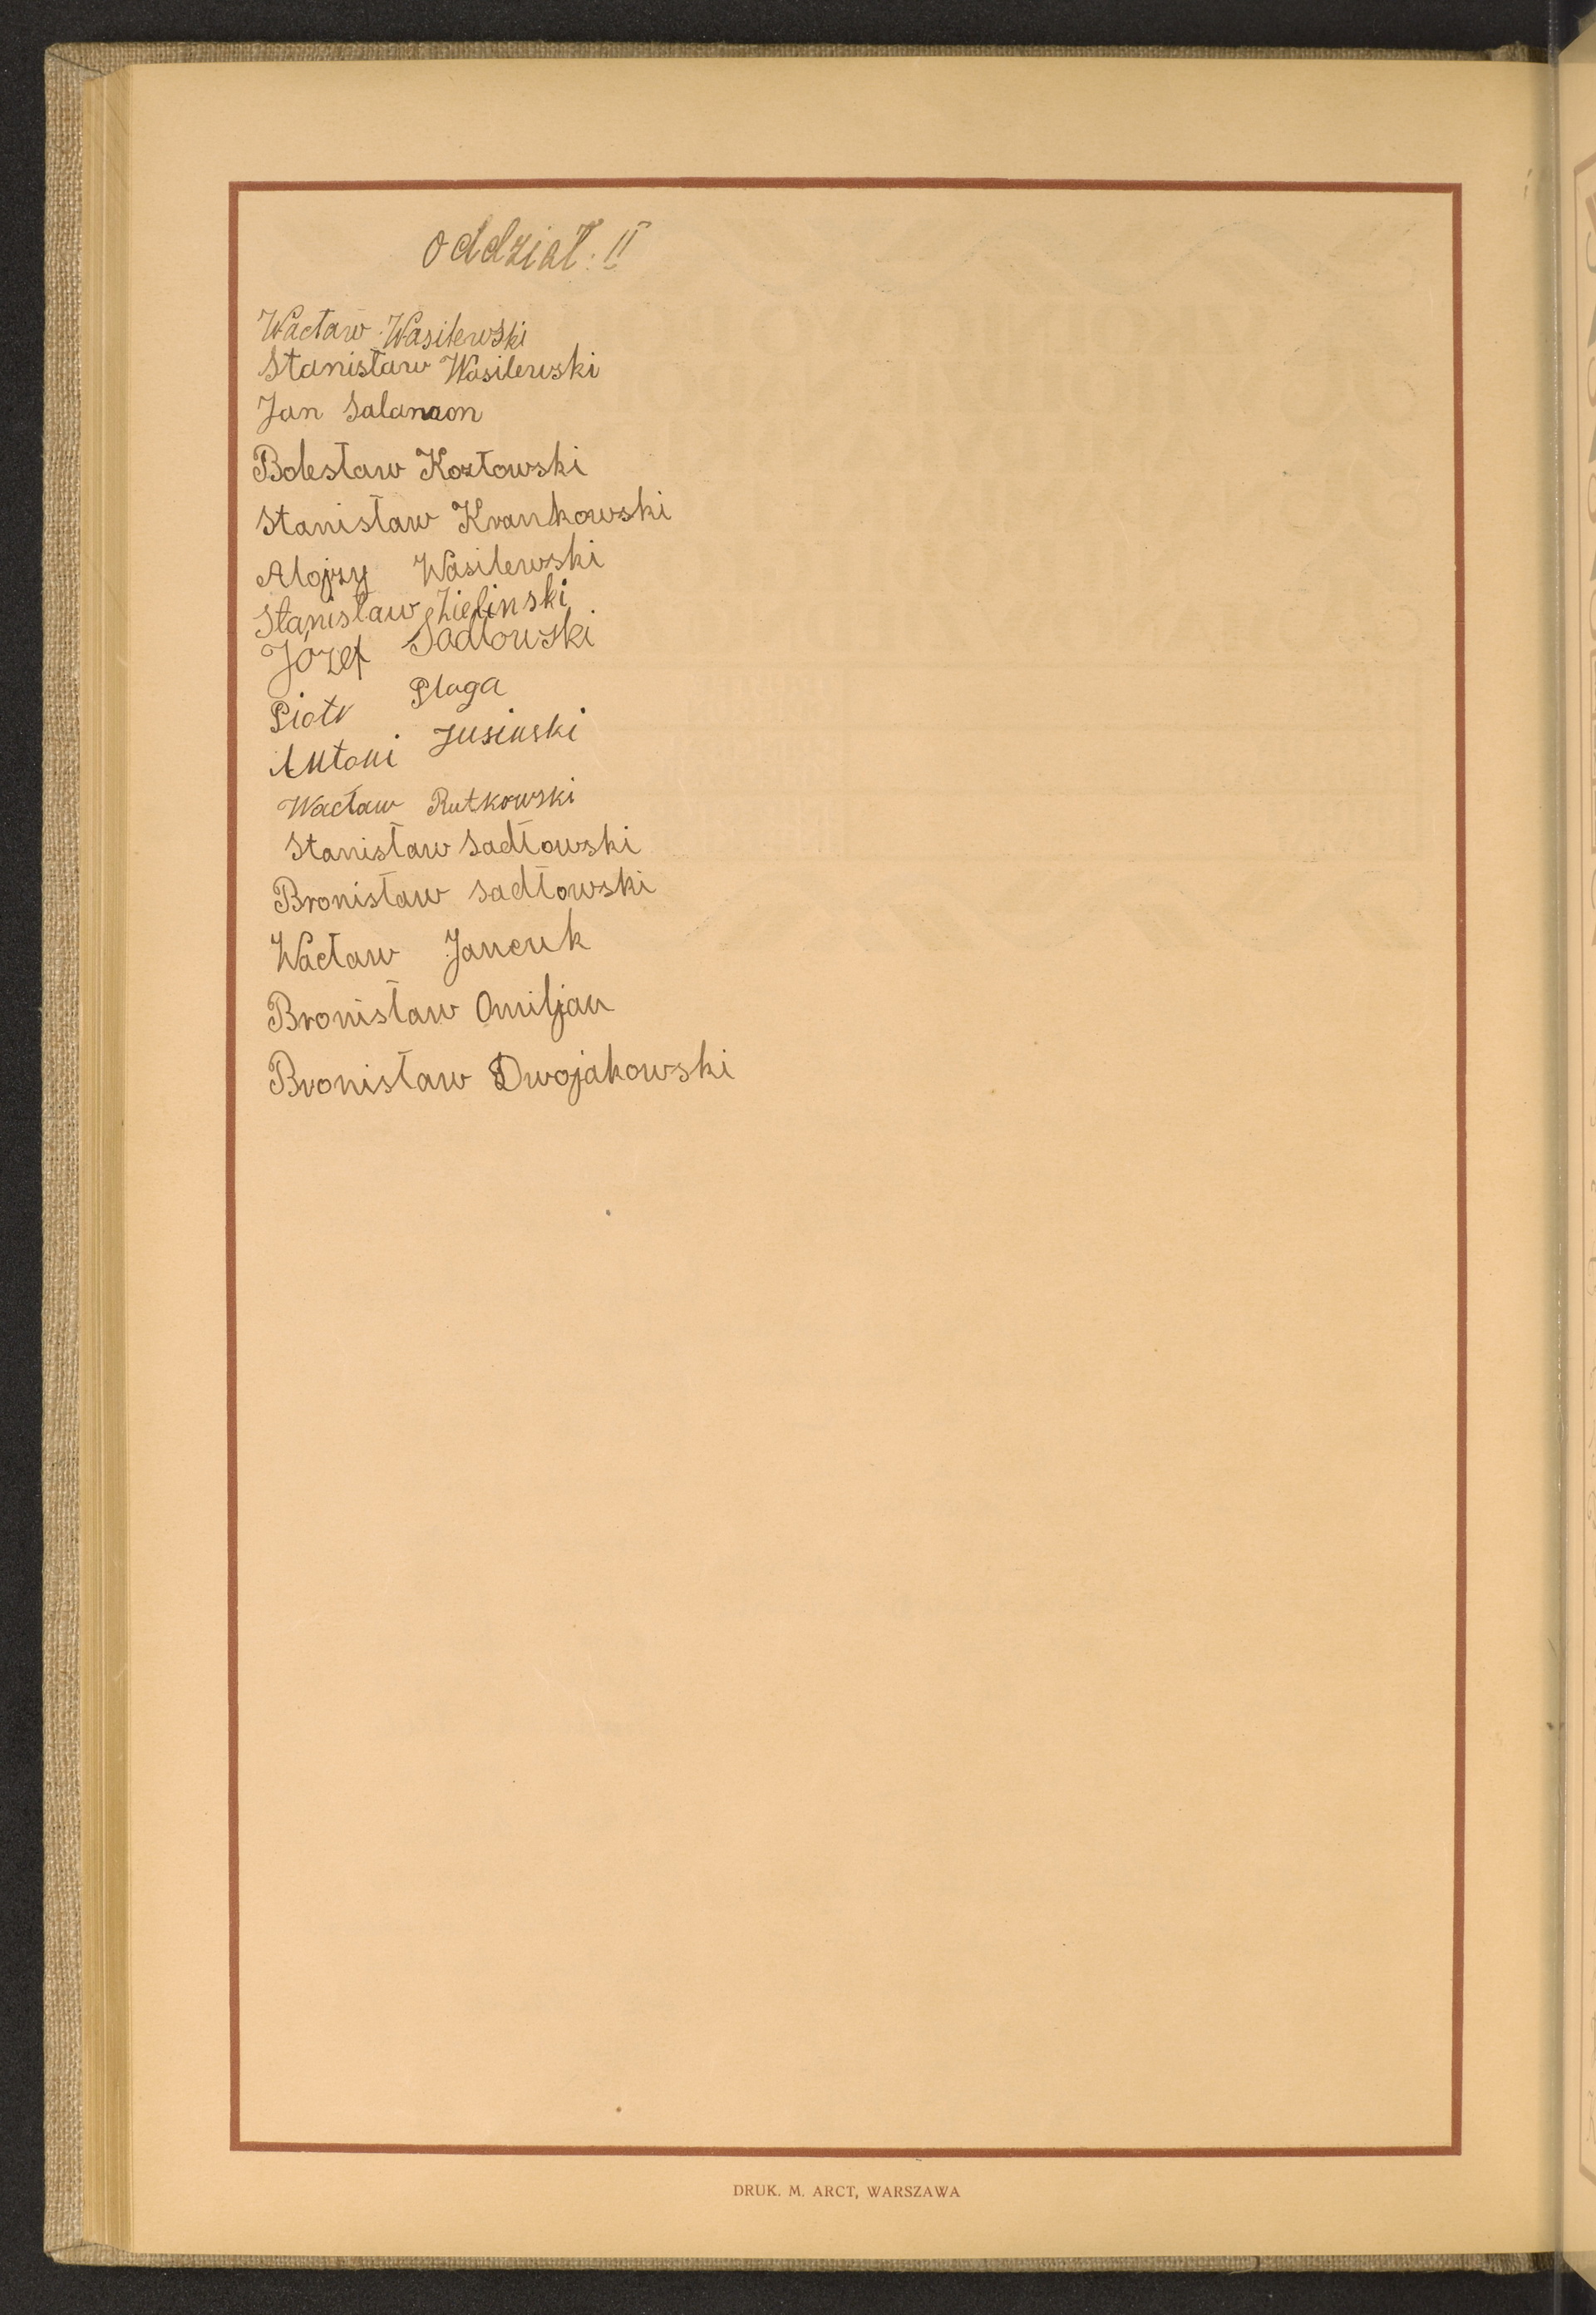 oddział. II
Wacław Wasilewski
Stanisław Wasilewski
Jan Salamon
Bolesław Kozłowski
Stanisław Krankowski
Alojzy Wasilewski
Stanislaw Zielinski
Józef Sadłowski
Piotr Plaga
Antoni Jusinski
Wacław Rutkowski
Stanisław Sadłowski
Bronisław Sadłowski
Wacław Jancuk
Bronisław Omiljan
Bronisław Dwojakowski
DRUK. M. ARCT, WARSZAWA